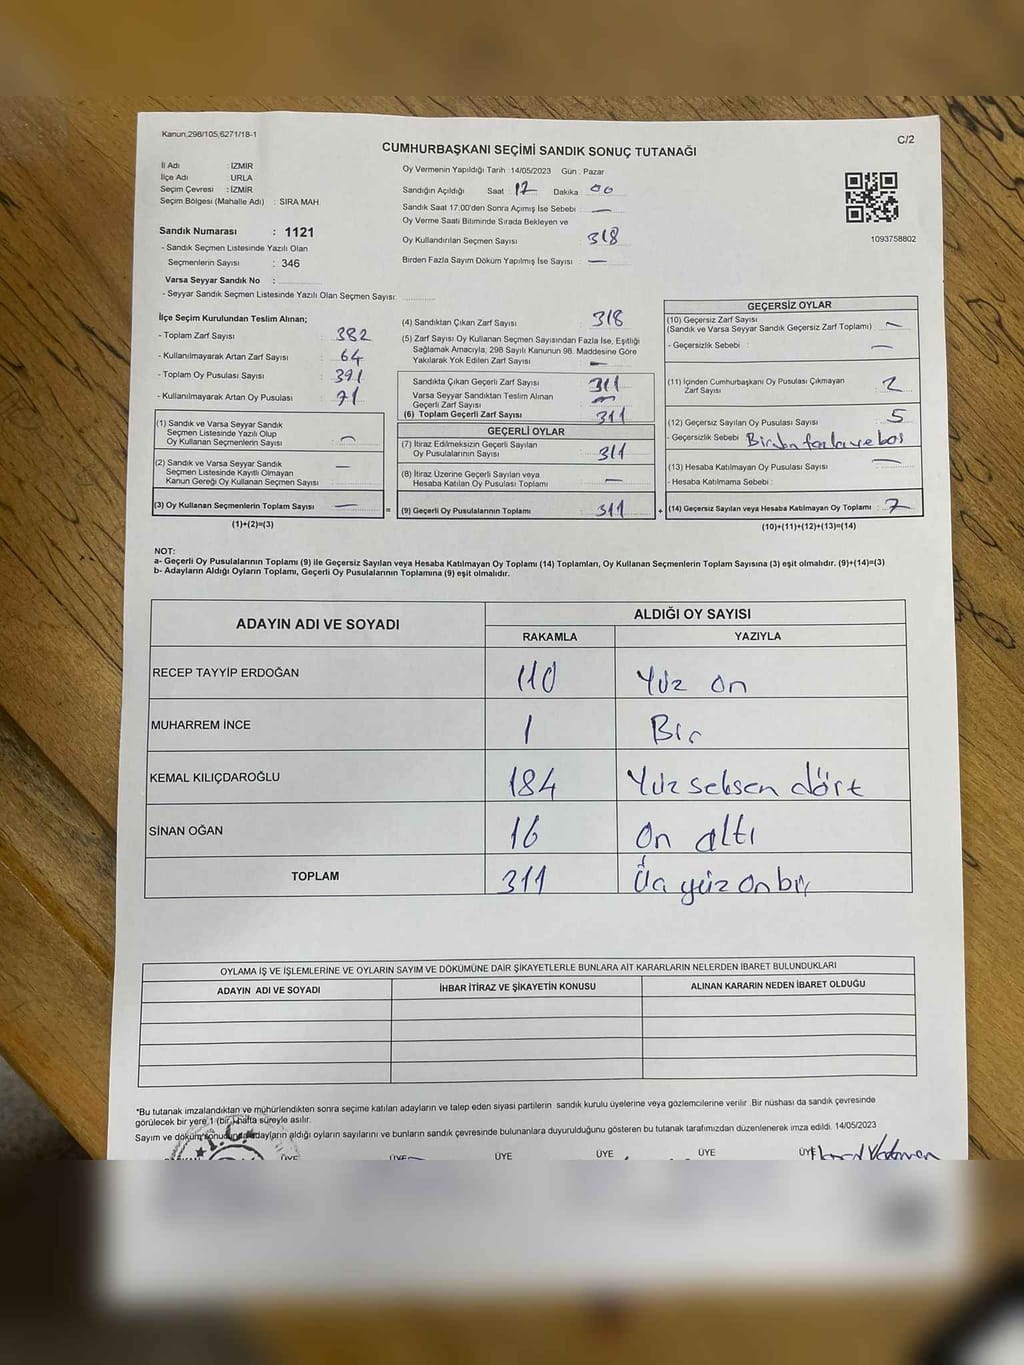 Kanun;298/105,6271/18-1
C/2
CUMHURBAŞKANI SEÇİMİ SANDIK SONUÇ TUTANAĞI
İl Adı : İZMİR
İlçe Adı : URLA
Seçim Çevresi : İZMİR
Seçim Bölgesi (Mahalle Adı) : SIRA MAH.
Sandık Numarası : 1121
- Sandık Seçmen Listesinde Yazılı Olan
Seçmenlerin Sayısı : 346
Varsa Seyyar Sandık No :
- Seyyar Sandık Seçmen Listesinde Yazılı Olan Seçmen Sayısı:
Oy Vermenin Yapıldığı Tarih : 14/05/2023 Gün : Pazar
Sandığın Açıldığı Saat 17 Dakika 00
Sandık Saat 17.00'den Sonra Açılmış İse Sebebi : —
Oy Verme Saati Bitiminde Sırada Bekleyen ve
Oy Kullandırılan Seçmen Sayısı : 318
Birden Fazla Sayım Döküm Yapılmış İse Sayısı : —
1093758802
İlçe Seçim Kurulundan Teslim Alınan;
- Toplam Zarf Sayısı : 382
- Kullanılmayarak Artan Zarf Sayısı : 64
- Toplam Oy Pusulası Sayısı : 391
- Kullanılmayarak Artan Oy Pusulası : 71
(1) Sandık ve Varsa Seyyar Sandık
Seçmen Listesinde Yazılı Olup
Oy Kullanan Seçmenlerin Sayısı : —
(2) Sandık ve Varsa Seyyar Sandık
Seçmen Listesinde Kayıtlı Olmayan
Kanun Gereği Oy Kullanan Seçmen Sayısı : —
(3) Oy Kullanan Seçmenlerin Toplam Sayısı : —
(1)+(2)=(3)
=
(4) Sandıktan Çıkan Zarf Sayısı : 318
(5) Zarf Sayısı Oy Kullanan Seçmen Sayısından Fazla İse, Eşitliği
Sağlamak Amacıyla; 298 Sayılı Kanunun 98. Maddesine Göre
Yakılarak Yok Edilen Zarf Sayısı : —
Sandıkta Çıkan Geçerli Zarf Sayısı : 311
Varsa Seyyar Sandıktan Teslim Alınan
Geçerli Zarf Sayısı : —
(6) Toplam Geçerli Zarf Sayısı : 311
GEÇERLİ OYLAR
(7) İtiraz Edilmeksizin Geçerli Sayılan
Oy Pusulalarının Sayısı : 311
(8) İtiraz Üzerine Geçerli Sayılan veya
Hesaba Katılan Oy Pusulası Toplamı : —
(9) Geçerli Oy Pusulalarının Toplamı : 311
+
GEÇERSİZ OYLAR
(10) Geçersiz Zarf Sayısı
(Sandık ve Varsa Seyyar Sandık Geçersiz Zarf Toplamı) : —
- Geçersizlik Sebebi : —
(11) İçinden Cumhurbaşkanı Oy Pusulası Çıkmayan
Zarf Sayısı : 2
(12) Geçersiz Sayılan Oy Pusulası Sayısı : 5
- Geçersizlik Sebebi : Birden fazla ve boş
(13) Hesaba Katılmayan Oy Pusulası Sayısı : —
- Hesaba Katılmama Sebebi :
(14) Geçersiz Sayılan veya Hesaba Katılmayan Oy Toplamı : 7
(10)+(11)+(12)+(13)=(14)
NOT:
a- Geçerli Oy Pusulalarının Toplamı (9) ile Geçersiz Sayılan veya Hesaba Katılmayan Oy Toplamı (14) Toplamları, Oy Kullanan Seçmenlerin Toplam Sayısına (3) eşit olmalıdır. (9)+(14)=(3)
b- Adayların Aldığı Oyların Toplamı, Geçerli Oy Pusulalarının Toplamına (9) eşit olmalıdır.
ADAYIN ADI VE SOYADI ALDIĞI OY SAYISI
RAKAMLA YAZIYLA
RECEP TAYYİP ERDOĞAN 110 Yüz on
MUHARREM İNCE 1 Bir
KEMAL KILIÇDAROĞLU 184 Yüz seksen dört
SİNAN OĞAN 16 On altı
TOPLAM 311 Üç yüz on bir
OYLAMA İŞ VE İŞLEMLERİNE VE OYLARIN SAYIM VE DÖKÜMÜNE DAİR ŞİKAYETLERLE BUNLARA AİT KARARLARIN NELERDEN İBARET BULUNDUKLARI
ADAYIN ADI VE SOYADI İHBAR İTİRAZ VE ŞİKAYETİN KONUSU ALINAN KARARIN NEDEN İBARET OLDUĞU
*Bu tutanak imzalandıktan ve mühürlendikten sonra seçime katılan adayların ve talep eden siyasi partilerin sandık kurulu üyelerine veya gözlemcilerine verilir. Bir nüshası da sandık çevresinde
görülecek bir yere 1 (bir) hafta süreyle asılır.
Sayım ve döküm sonucunda adayların aldığı oyların sayılarını ve bunların sandık çevresinde bulunanlara duyurulduğunu gösteren bu tutanak tarafımızdan düzenlenerek imza edildi. 14/05/2023
T.C.
ÜYE ÜYE ÜYE ÜYE ÜYE ÜYE